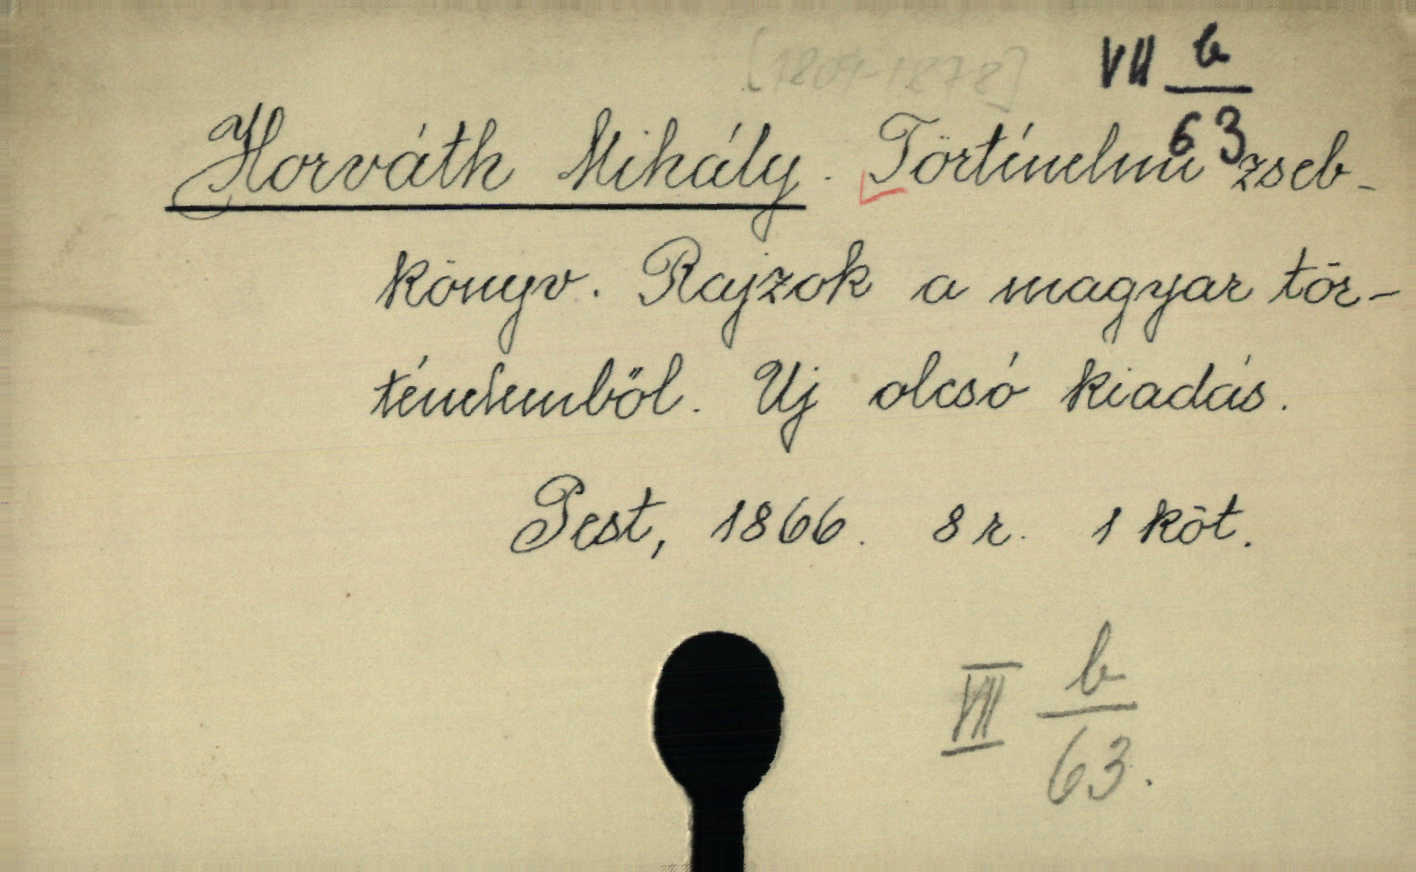 [1809-1878]
VII b/63
Horváth Mihály. Történelmi zseb-
könyv. Rajzok a magyar tör-
ténelemből. Uj olcsó kiadás.
Pest, 1866. 8 r. 1 köt.
VII b/63.